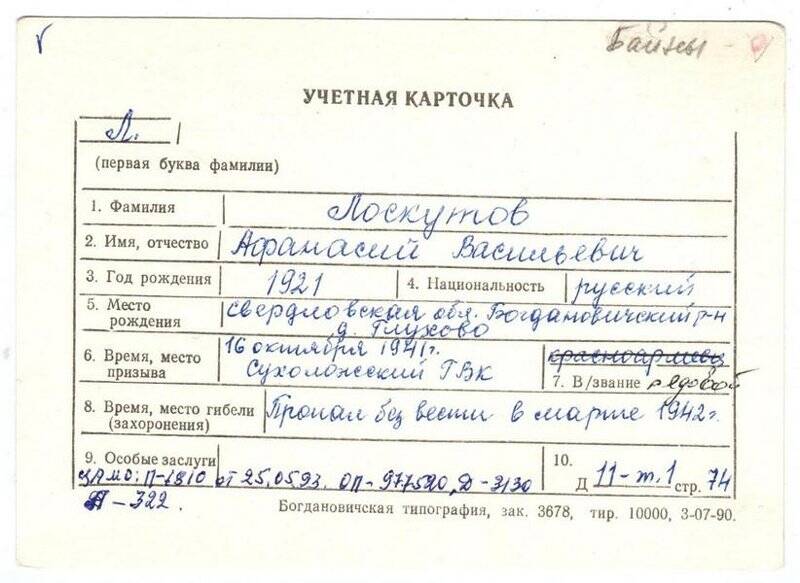 Байны
УЧЕТНАЯ КАРТОЧКА
Л.
(первая буква фамилии)
1. Фамилия Лоскутов
2. Имя, отчество Афанасий Васильевич
3. Год рождения 1921 4. Национальность русский
5. Место рождения свердловская обл. Богдановичский р-н
д. Глухово
6. Время, место призыва 16 октября 1941г.
Сухоложский ГВК
красноармеец
7. В/звание рядовой
8. Время, место гибели (захоронения) Пропал без вести в марте 1942г.
9. Особые заслуги
ЦАМО: П-1810 от 25.05.93. ОП-977520, Д-3130
Л-322.
10. Д 11-т.1 стр. 74
Богдановичская типография, зак. 3678, тир. 10000, 3-07-90.